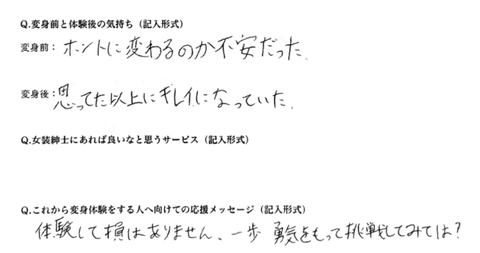 Q.変身前と体験後の気持ち（記入形式）
変身前：ホントに変わるのか不安だった.
変身後：思ってた以上にキレイになっていた.
Q.女装紳士にあれば良いなと思うサービス（記入形式）
Q.これから変身体験をする人へ向けての応援メッセージ（記入形式）
体験して損はありません、一歩 勇気をもって挑戦してみては？